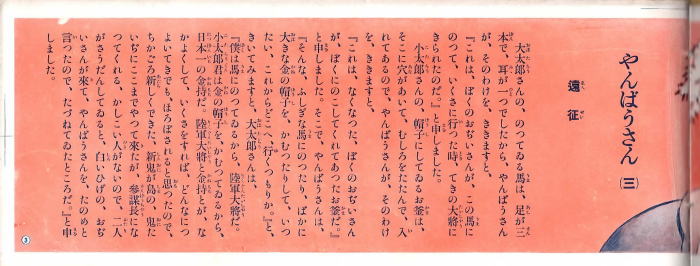 やんばうさん (三)
遠征
大太郎さんの、のつてゐる馬は、足が三
本で、耳が一つでしたから、やんばうさん
が、そのわけを、ききますと、
『これは、ぼくのおぢいさんが、この馬に
のつて、いくさに行つた時、てきの大將に
きられたのだ。』と申しました。
小太郎さんの、帽子にしてゐるお釜は、
そこに穴があいて、むしろをたたんで、入
れてあるので、やんばうさんが、そのわけ
を、ききますと、
『これは、なくなつた、ぼくのおぢいさん
が、ぼくにのこしてくれてあつたお釜だ。』
と申しました。そこで、やんばうさんは、
『そんな、ふしぎな馬にのつたり、ばかに
大きな金の帽子を、かむつたりして、いつ
たい、これからどこへ、行くつもりか。』と、
きいてみますと、大太郎さんは、
『僕は馬にのつてゐるから、陸軍大將だ。
小太郎君は金の帽子を、かむつてゐるから、
日本一の金持だ。陸軍大將と金持とが、な
かよくして、いくさをすれば、どんなにつ
よいてきでもほろぼされると思つたので、
ちかごろ新しくできた、新鬼が島の、鬼た
いぢにここまでやつて來たが、參謀長にな
つてくれる、かしこい人がないので、二人
がさうだんしてゐると、白いひげの、おぢ
いさんが來て、やんばうさんを、たのめと
言つたので、たづねてゐたところだ。』と申
しました。
3